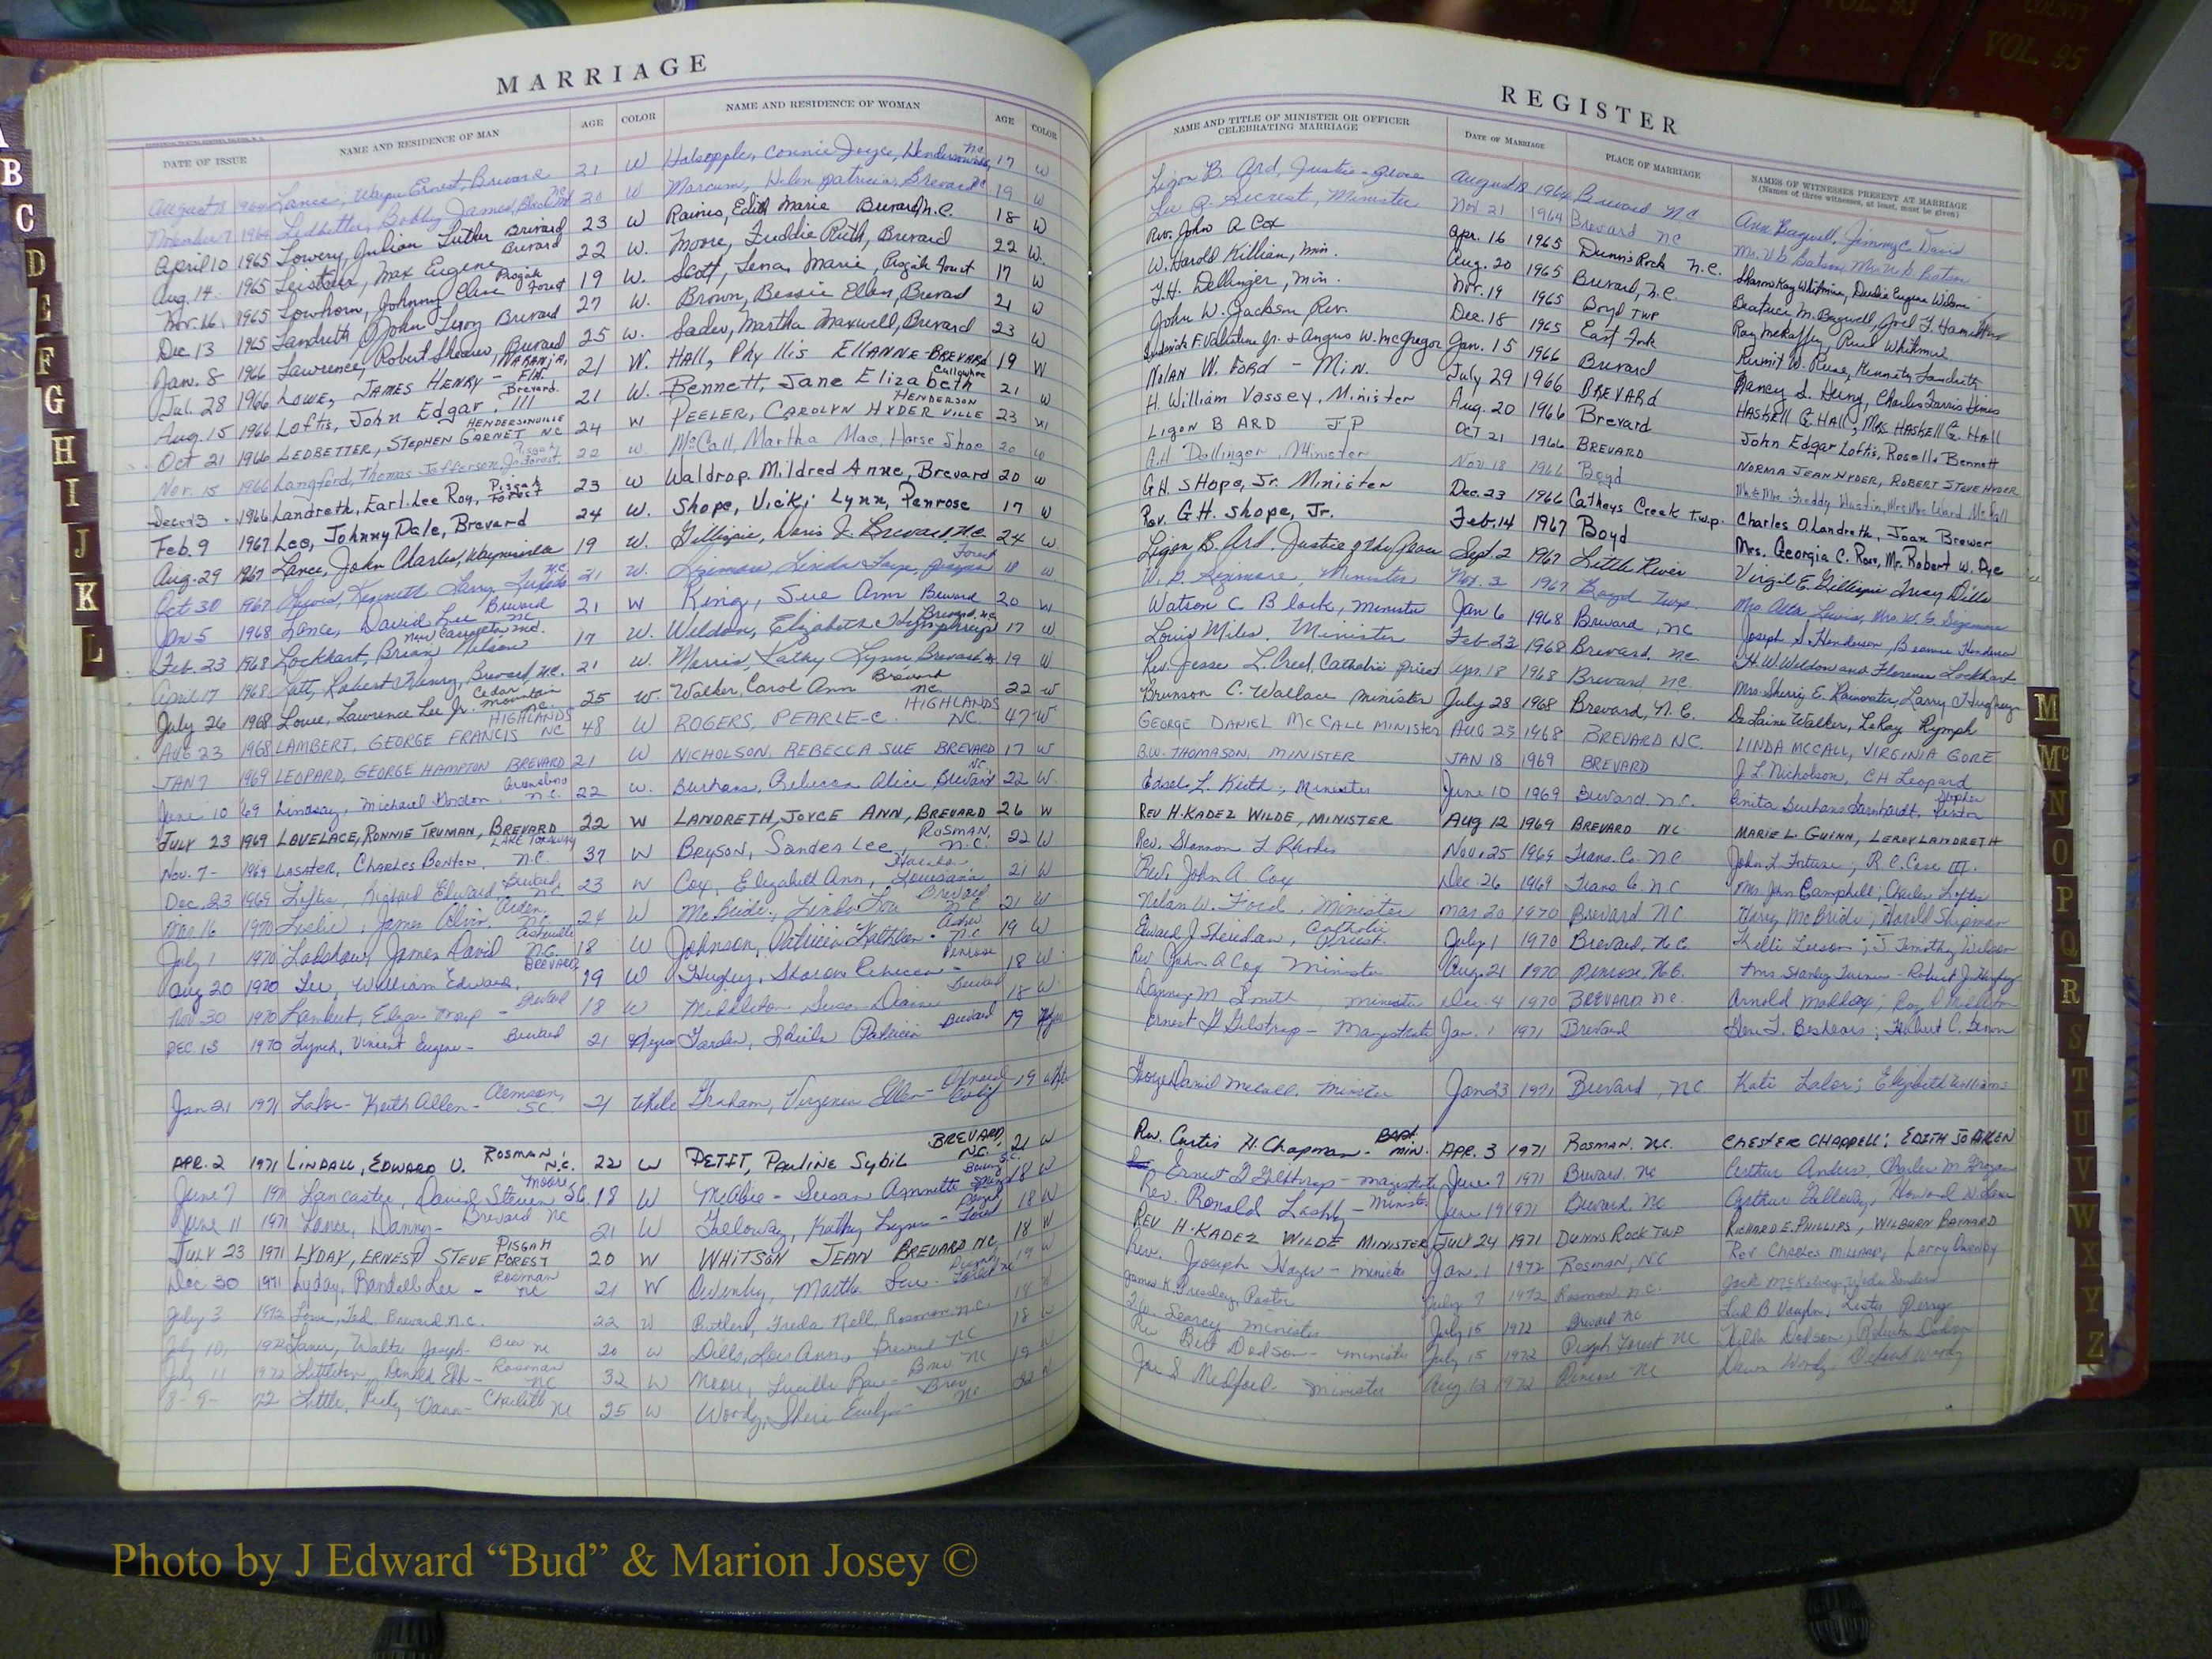 COUNTY
VOL. 93
VOL. 95
MARRIAGE
DATE OF ISSUE NAME AND RESIDENCE OF MAN AGE COLOR NAME AND RESIDENCE OF WOMAN AGE COLOR
August 1964 Lance, Wayne Ernest, Brevard 21 W Holsopple, Connie Joyce, Hendersonville NC 17 W
November 7 1964 Ledbetter, Bobby James, NC 20 W Marcum, Helen Patricia, Brevard NC 19 W
April 10 1965 Lowery, Julian Luther Brevard 23 W Raines, Edith Marie Brevard, N.C. 18 W
Aug. 14 1965 Max Eugene Brevard 22 W. Moore, Freddie Ruth, Brevard 22 W.
Nov. 16 1965 Lowhorn, Johnny Cline Pisgah Forest 19 W. Scott, Lena Marie, Pisgah Forest 17 W
Dec 13 1965 Landreth, John Leroy Brevard 27 W. Brown, Bessie Ellen, Brevard 21 W
Jan. 8 1966 Lawrence, Robert Brevard 25 W. Martha Maxwell, Brevard 23 W
Jul. 28 1966 LOWE, JAMES HENRY - NARANJA, FLA. 21 W. HALL, Phyllis EllANNE - BREVARD 19 W
Aug. 15 1966 Loftis, John Edgar, III Brevard. 21 W. Bennett, Jane Elizabeth Cullowhee 21 W
Oct 21 1966 LEDBETTER, STEPHEN GARNET HENDERSONVILLE NC 24 W PEELER, CAROLYN HYDER HENDERSONVILLE 23 W
Nov. 15 1966 Langford, Thomas Jefferson, Jr. Pisgah Forest 22 W. McCall, Martha Mae, Horse Shoe 20 W
Dec. 13 1966 Landreth, Earl Lee Roy, Pisgah Forest 23 W Waldrop, Mildred Anne, Brevard 20 W
Feb. 9 1967 Lee, Johnny Dale, Brevard 24 W. Shope, Vicki Lynn, Penrose 17 W
Aug. 29 1967 Lance, John Charles, Waynesville 19 W. Gillespie, Doris J. Brevard NC 24 W.
Oct 30 1967 Kenneth Larry, NC 21 W. Linda Faye, Forest 18 W
Jan 5 1968 Lance, David Lee Brevard NC 21 W King, Sue Ann Brevard 20 W
Feb. 23 1968 Lockhart, Brian Nelson New Carrolton Md. 17 W. Weldon, Elizabeth Humphries Brevard, NC 17 W
April 17 1968 Latt, Robert Henry, Brevard, NC. 21 W. Morris, Kathy Lynn, Brevard 19 W
July 26 1968 Lowe, Lawrence Lee Jr. Cedar Mountain NC. 25 W. Walker, Carol Ann Brevard NC. 22 W
Aug 23 1968 LAMBERT, GEORGE FRANCIS HIGHLANDS NC 48 W ROGERS, PEARLE C. HIGHLANDS NC. 47 W
JAN 7 1969 LEOPARD, GEORGE HAMPTON BREVARD 21 W NICHOLSON, REBECCA SUE BREVARD 17 W
June 10 '69 Lindsay, Michael Gordon. Greensboro N.C. 22 W. Rebecca Alice, Brevard NC. 22 W.
JULY 23 1969 LOVELACE, RONNIE TRUMAN, BREVARD 22 W LANDRETH, JOYCE ANN, BREVARD 26 W
Nov. 7 - 1969 LASATER, Charles Benton, LAKE TOXAWAY N.C. 37 W BRYSON, Sandra Lee, ROSMAN, N.C. 22 W
Dec. 23 1969 Loftis, Richard Edward Brevard, NC 23 W Cox, Elizabeth Ann, Louisiana 21 W
Mar. 16 1970 Leslie, James Alvin. Arden. NC 24 W McBride, Linda Lou Brevard N.C. 21 W
July 1 1970 James David Asheville N.C. 18 W Johnson, Patricia Kathleen. N.C. 19 W
Aug 20 1970 Lee, William Edward, BREVARD 19 W Hughey, Sharon Rebecca - Penrose 18 W
Nov. 30 1970 Lambert, Brevard 18 W Middleton Susan Diane Brevard 18 W
DEC. 15 1970 Lynch, Vincent Eugene - Brevard 21 Negro Sheila Patricia Brevard 19 Negro
Jan 21 1971 Labor - Keith Allen - Clemson, SC 21 White Graham, Virginia Ellen - Calif 19 White
APR. 2 1971 LINDALL, EDWARD V. ROSMAN, N.C. 22 W PETIT, PAULINE Sybil BREVARD, NC. 21 W
June 7 1971 Lancaster, David Steven Moore, SC. 18 W McAbee - Susan Annette S.C. 18 W
June 11 1971 Lance, Danny - Brevard NC 21 W Galloway, Kathy Lynn - Forest 18 W
JULY 23 1971 LYDAY, ERNEST STEVE PISGAH FOREST 20 W WHITSON JEAN BREVARD NC 18 W
Dec 30 1971 Lyday, Randall Lee - Rosman NC 21 W Owenby, Martha Sue - Forest NC 19 W
July 3 1972 Lowe, Ted Brevard N.C. 22 W Butler, Freda Nell, Rosman, N.C. 18 W
July 10, 1972 Walter Joseph - Brev. NC 20 W Dills, Lois Ann, Brevard NC 18 W
July 11 1972 Littleton Donald Rosman NC 32 W Moore, Lucille Brev. NC 19 W
8 - 9 - 72 Little, Ricky Vann - Charlotte NC 25 W Woody, Sheri Evelyn - Brev. NC 22 W
REGISTER
NAME AND TITLE OF MINISTER OR OFFICER CELEBRATING MARRIAGE DATE OF MARRIAGE PLACE OF MARRIAGE NAMES OF WITNESSES PRESENT AT MARRIAGE (Names of three witnesses, at least, must be given)
Ligon B. Ard, Justice - Peace August 1964 Brevard NC Ann Bagwell, Jimmy C. Davis
Lee R. Secrest, Minister Nov 21 1964 Brevard NC Mr. V. B. Batson, Mrs. V. B. Batson
Rev. John A Cox Apr. 16 1965 Dunn's Rock N.C. Sharon Kay Whitmire, Eugene Wilson
W. Harold Killian, Min. Aug. 20 1965 Brevard, N.C. Beatrice M. Bagwell, Joel T. Hamilton
G. H. Dellinger, Min. Nov. 19 1965 Boyd TWP Ray McKaffey, Whitmire
John W. Jackson Rev. Dec. 18 1965 East Fork Kermit W. Reese, Kenneth Landreth
Frederick F. Valentine Jr. & Angus W. McGregor Jan. 15 1966 Brevard Nancy S. Hines, Charles Farris Hines
NOLAN W. FORD - MIN. July 29 1966 BREVARD HASKELL G. HALL, MRS HASKELL G. HALL
H. William Vassey, Minister Aug. 20 1966 Brevard John Edgar Loftis, Rosella Bennett
LIGON B ARD J P OCT 21 1966 BREVARD NORMA JEAN HYDER, ROBERT STEVE HYDER
G.H. Dellinger, Minister Nov. 18 1966 Boyd Mr & Mrs. Freddy Mr & Mrs. Ward McCall
G.H. SHope, Jr. Minister Dec. 23 1966 Catheys Creek Twp. Charles O. Landreth, Joan Brewer
Rev. G.H. Shope, Jr. Feb. 14 1967 Boyd Mrs. Georgia C. Ross, Mr. Robert W. Dye
Ligon B. Ard, Justice of the Peace Sept. 2 1967 Little River Virgil E. Gillespie Dills
W. S. Minister Nov. 3 1967 Boyd Twp.
Watson C. Black, Minister Jan 6 1968 Brevard, NC Joseph S. Henderson, Henderson
Louis Miles, Minister Feb 23 1968 Brevard, NC. H. W. Weldon and Florence Lockhart
Rev. Jesse L. Creel, Catholic Priest Apr. 18 1968 Brevard NC. Mrs. Sherry E. Rainwater, Larry Hughey
Brunson C. Wallace Minister July 28 1968 Brevard, N.C. DeLaine Walker, LeRoy Rymph
GEORGE DANIEL MCCALL MINISTER AUG 23 1968 BREVARD NC. LINDA MCCALL, VIRGINIA GORE
B.W. THOMASON, MINISTER JAN 18 1969 BREVARD J L Nicholson, C H Leopard
Edsel L. Keith, Minister June 10 1969 Brevard N.C. Anita
REV H. KADEZ WILDE, MINISTER Aug 12 1969 BREVARD NC MARIE L. GUINN, LEROY LANDRETH
Rev. Shannon L Rhodes Nov. 25 1969 Trans. Co. NC John L Fortune; R. C. Case III.
Rev. John A. Cox Dec. 26 1969 Trans. Co. NC Mrs. Jan Campbell; Charles Loftis
Nolan W. Ford, Minister Mar 20 1970 Brevard NC Harry McBride; Harold Shipman
Edward J Sheridan, Catholic Priest. July 1 1970 Brevard, N.C. Kelli Leeson; J Timothy Wilson
Rev. John A Cox Minister Aug. 21 1970 Penrose, N.C. Mrs Stanley Turner - Robert J. Hughey
Danny M Smith, minister Dec. 4 1970 BREVARD NC. Arnold Maddox; Roy D Middleton
Ernest G Gilstrap - Magistrate Jan. 1 1971 Brevard L. Beshears;
George Daniel McCall, Minister Jan 23 1971 Brevard, NC Kati Labor; Elizabeth Williams
Rev. Curtis H. Chapman - Bapt. Min. APR. 3 1971 ROSMAN. N.C. CHESTER CHAPPELL; EDITH JO AIKEN
Ernest G Gilstrap - Magistrate June 7 1971 Brevard. NC Arthur Anders, Charles M.
Rev. Ronald Minist. June 19 1971 Brevard NC Arthur Galloway, Howard W. Lance
REV H. KADEZ WILDE MINISTER JULY 24 1971 DUNNS ROCK TWP RICHARD E. PHILLIPS, WILBURN BARNARD
Rev. Joseph - Minister Jan. 1 1972 ROSMAN, NC Rev Charles Larry Owenby
James K. Presley, Pastor July 7 1972 Rosman N.C. Jack McKelvey, Wade Sanders
Searcy Minister July 15 1972 Brevard NC Led B Vaughn; Lester Perry
Rev Bill Dodson - minister July 15 1972 Pisgah Forest NC Dodson,
Joe S Medford. minister Aug. 12 1972 Penrose NC Dawn Woody;
B
C
D
E
F
G
H
I
J
K
L
M
Mc
N
O
P
Q
R
S
T
U
V
W
X
Y
Z
Photo by J Edward “Bud” & Marion Josey ©